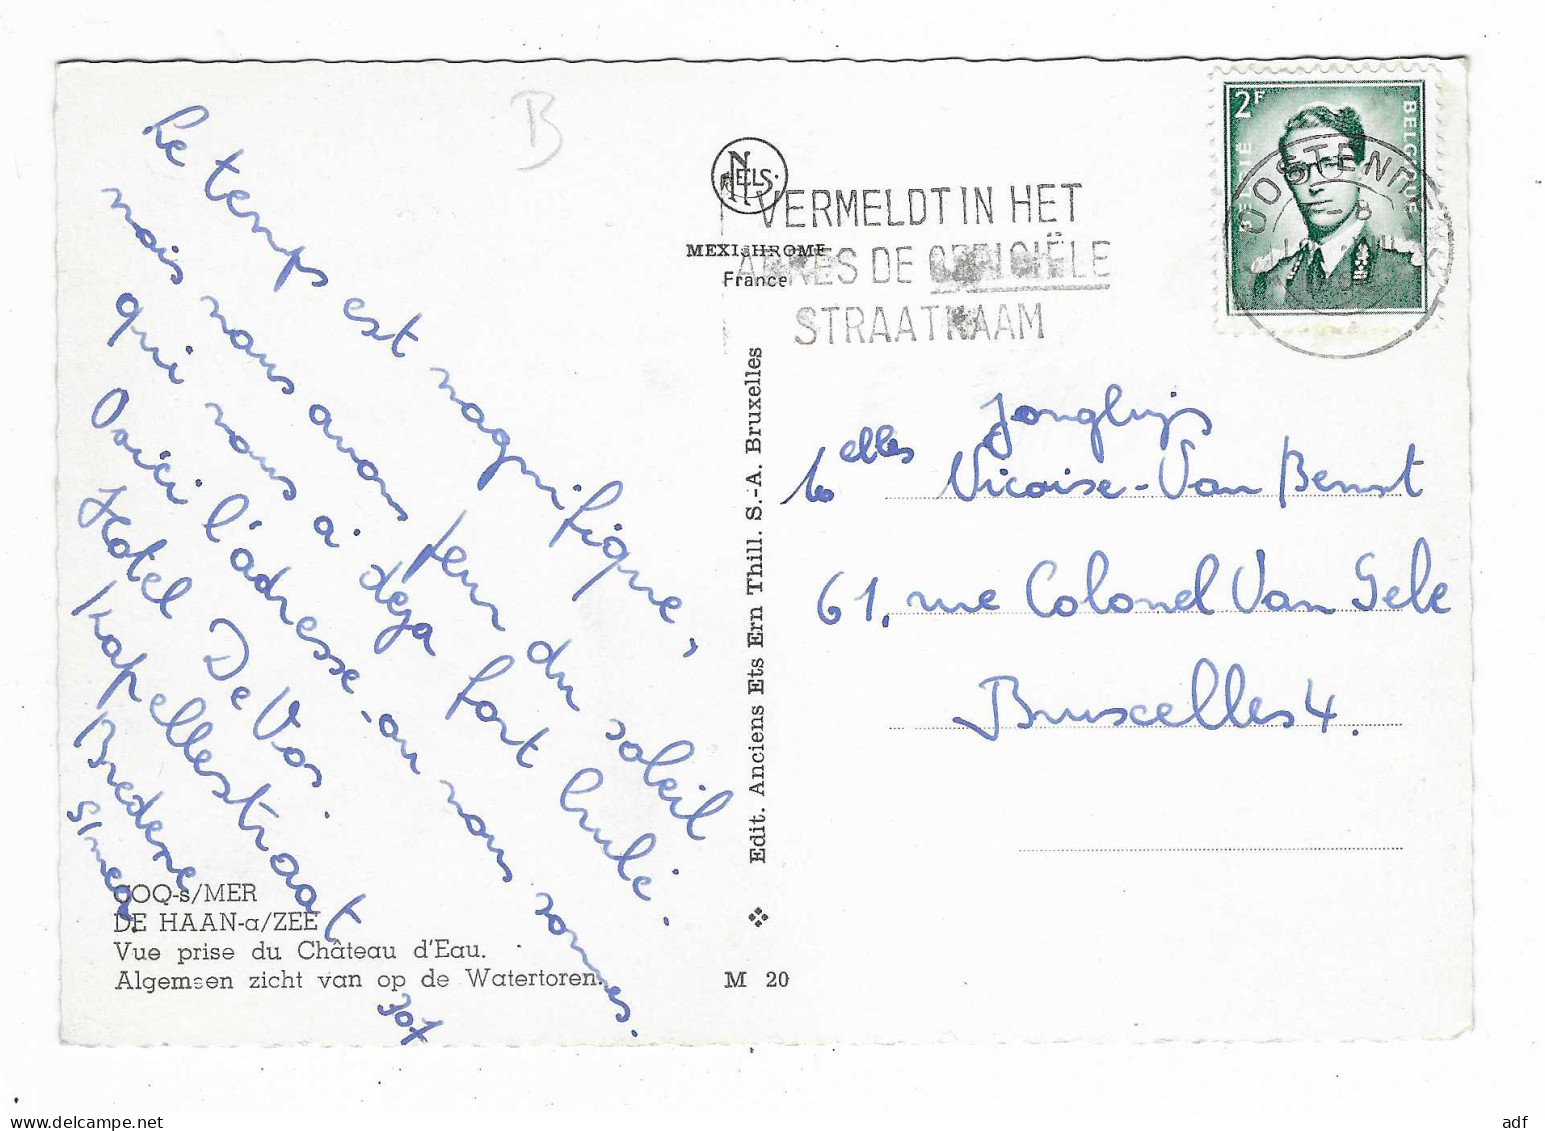 B
Le temps est magnifique,
mais nous avons peur du soleil
qui nous a déjà fort brulé.
Voici l'adresse où nous sommes.
Hotel De Vos.
Kapellestraat 307
Bredene
s/mer
COQ-s/MER
DE HAAN-a/ZEE
Vue prise du Château d'Eau.
Algemeen zicht van op de Watertoren.
NELS
MEXICHROME
France
Edit. Anciens Ets Ern Thill. S.-A. Bruxelles
M 20
VERMELDT IN HET
ADRES DE OFFICIËLE
STRAATNAAM
2F
BELGIË
BELGIQUE
OOSTENDE
elles
Nicaise-Van
61, rue Colonel Van Gele
Bruxelles 4.
adf